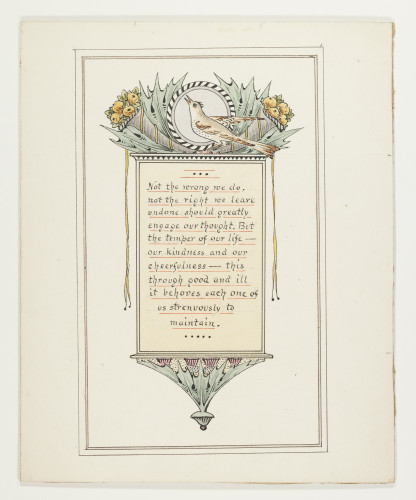 Not the wrong we do.
not the right we leave
undone should greatly
engage our thought. But
the temper of our life —
our kindness and our
cheerfulness — this
through good and ill
it behoves each one of
us strenuously to
maintain.